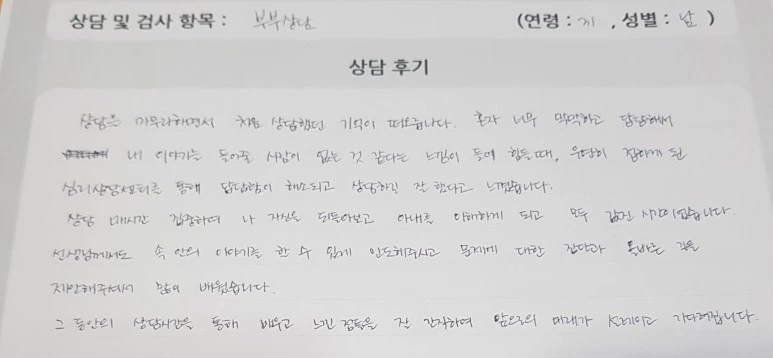 상담 및 검사 항목 : 부부상담 (연령 : 31 , 성별 : 남 )
상담 후기
상담을 마무리하면서 처음 상담했던 기억이 떠오릅니다. 혼자 너무 막막하고 답답해서
내 이야기를 들어줄 사람이 없는 것 같다는 느낌이 들어 힘들때, 우연히 접하게 된
심리상담센터를 통해 답답함이 해소되고 상담하길 잘 했다고 느꼈습니다.
상담 매시간 집중하며 나 자신을 되돌아보고 아내를 이해하게 되고 모두 값진 시간이었습니다.
선생님께서도 속 안의 이야기를 할 수 있게 인도해주시고 문제에 대한 진단과 올바른 길을
제안해주셔서 많이 배웠습니다.
그 동안의 상담시간을 통해 배우고 느낀 점들을 잘 간직하며 앞으로의 미래가 설레이고 기다려집니다.